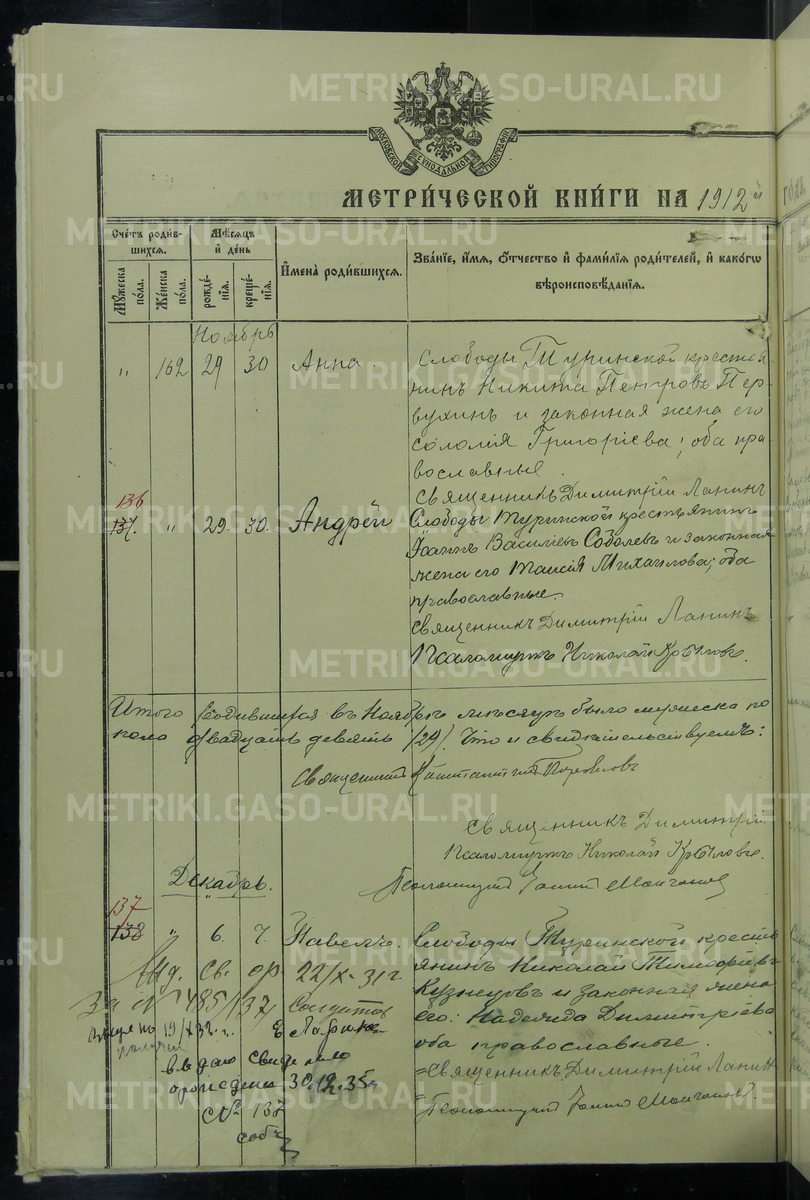 METRIKI.GASO-URAL.RU
МОСКОВСКОЙ СѴНОДАЛЬНОЙ ТИПОГРАФІИ
МЕТРИ́ЧЕСКОЙ КНИ́ГИ НА 1912й
Сче́тъ роди́вшихсѧ.
Мꙋ́жеска по́ла.
Же́нска по́ла.
Мѣ́сѧцъ и҆ де́нь
рожде́нїѧ.
креще́нїѧ.
И҆мена̀ роди́вшихсѧ.
Зва́нїе, и҆́мѧ, ѻ҆́тчество и҆ фами́лїѧ роди́телей, и҆ како́гѡ вѣроисповѣ́данїѧ.
Ноябрь
„ 162 29 30 Анна.
Слободы Туринской крестья
нинъ Никита Петровъ Пер
вухинъ и законная жена его
Соломія Григоріева; оба пра
вославные.
Священникъ Димитрій Лапинъ
136
137. „ 29. 30. Андрей
Слободы Туринской крестьянинъ
Іоаннъ Василіевъ Соболевъ и законная
жена его Таисія Михаилова; оба
православные.
Священникъ Димитрій Лапинъ
Псаломщикъ Николай Крыловъ.
Итого родившихся въ Ноябрѣ мѣсяцѣ было мужеска по
двадцать девять (29). Что и свидѣтельствуемъ:
Священникъ
Священникъ Димитрій
Псаломщикъ Николай Крыловъ.
Декабрь.
Псаломщикъ
137
138 „ 6. 7. Павелъ.
Слободы Туринской кресть
янинъ Николай Тимофѣевъ
Кузнецовъ и законная жена
его: Надежда Димитріева
оба православные.
=Священникъ Димитрій Лапинъ
Псаломщикъ
22/X-31г
За № 485/137
19/X 32. г.
30.12.35г
№ 138